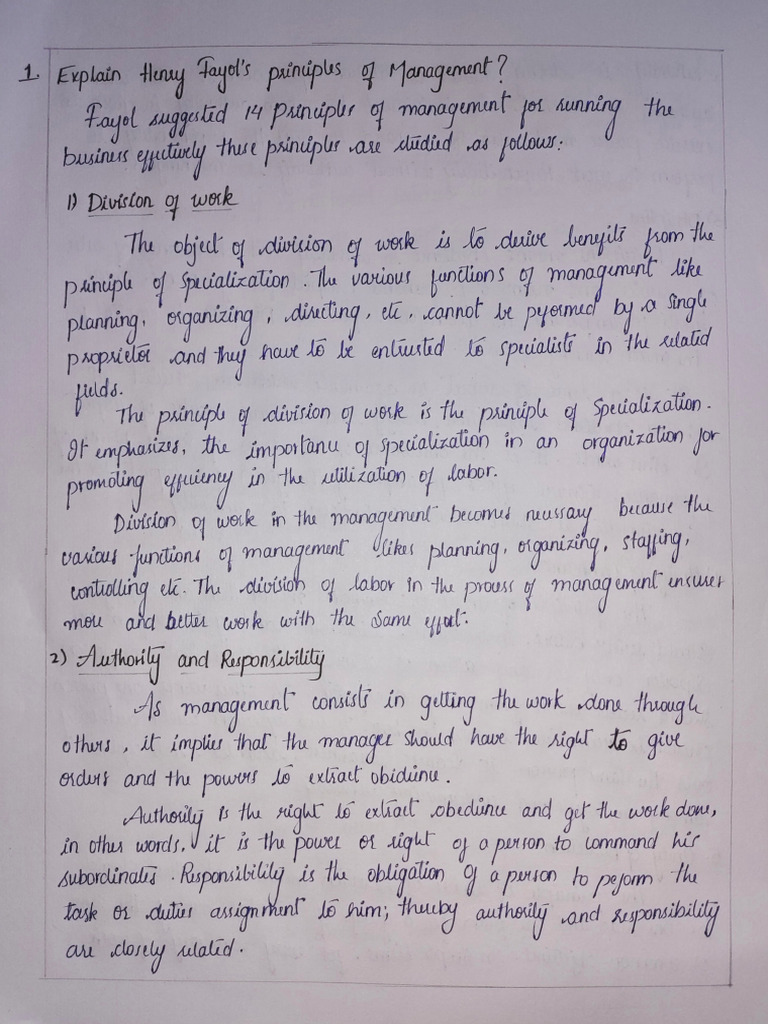 1. Explain Henry Fayol's principles of Management?
Fayol suggested 14 Principles of management for running the
business effectively these principles are studied as follows:
1) Division of work
The object of division of work is to derive benefits from the
principle of Specialization. The various functions of management like
planning, organizing, directing, etc, cannot be performed by a single
proprietor and they have to be entrusted to specialists in the related
fields.
The principle of division of work is the principle of Specialization.
It emphasizes, the importance of specialization in an organization for
promoting efficiency in the utilization of labor.
Division of work in the management becomes necessary because the
various functions of management likes planning, organizing, staffing,
controlling etc. The division of labor in the process of management ensures
more and better work with the same effort.
2) Authority and Responsibility
As management consists in getting the work done through
others, it implies that the manager should have the right to give
orders and the powers to extract obidience.
Authority is the right to extract obedience and get the work done,
in other words, it is the power or right of a person to command his
subordinates. Responsibility is the obligation of a person to perform the
task or duties assignment to him; thereby authority and responsibility
are closely related.